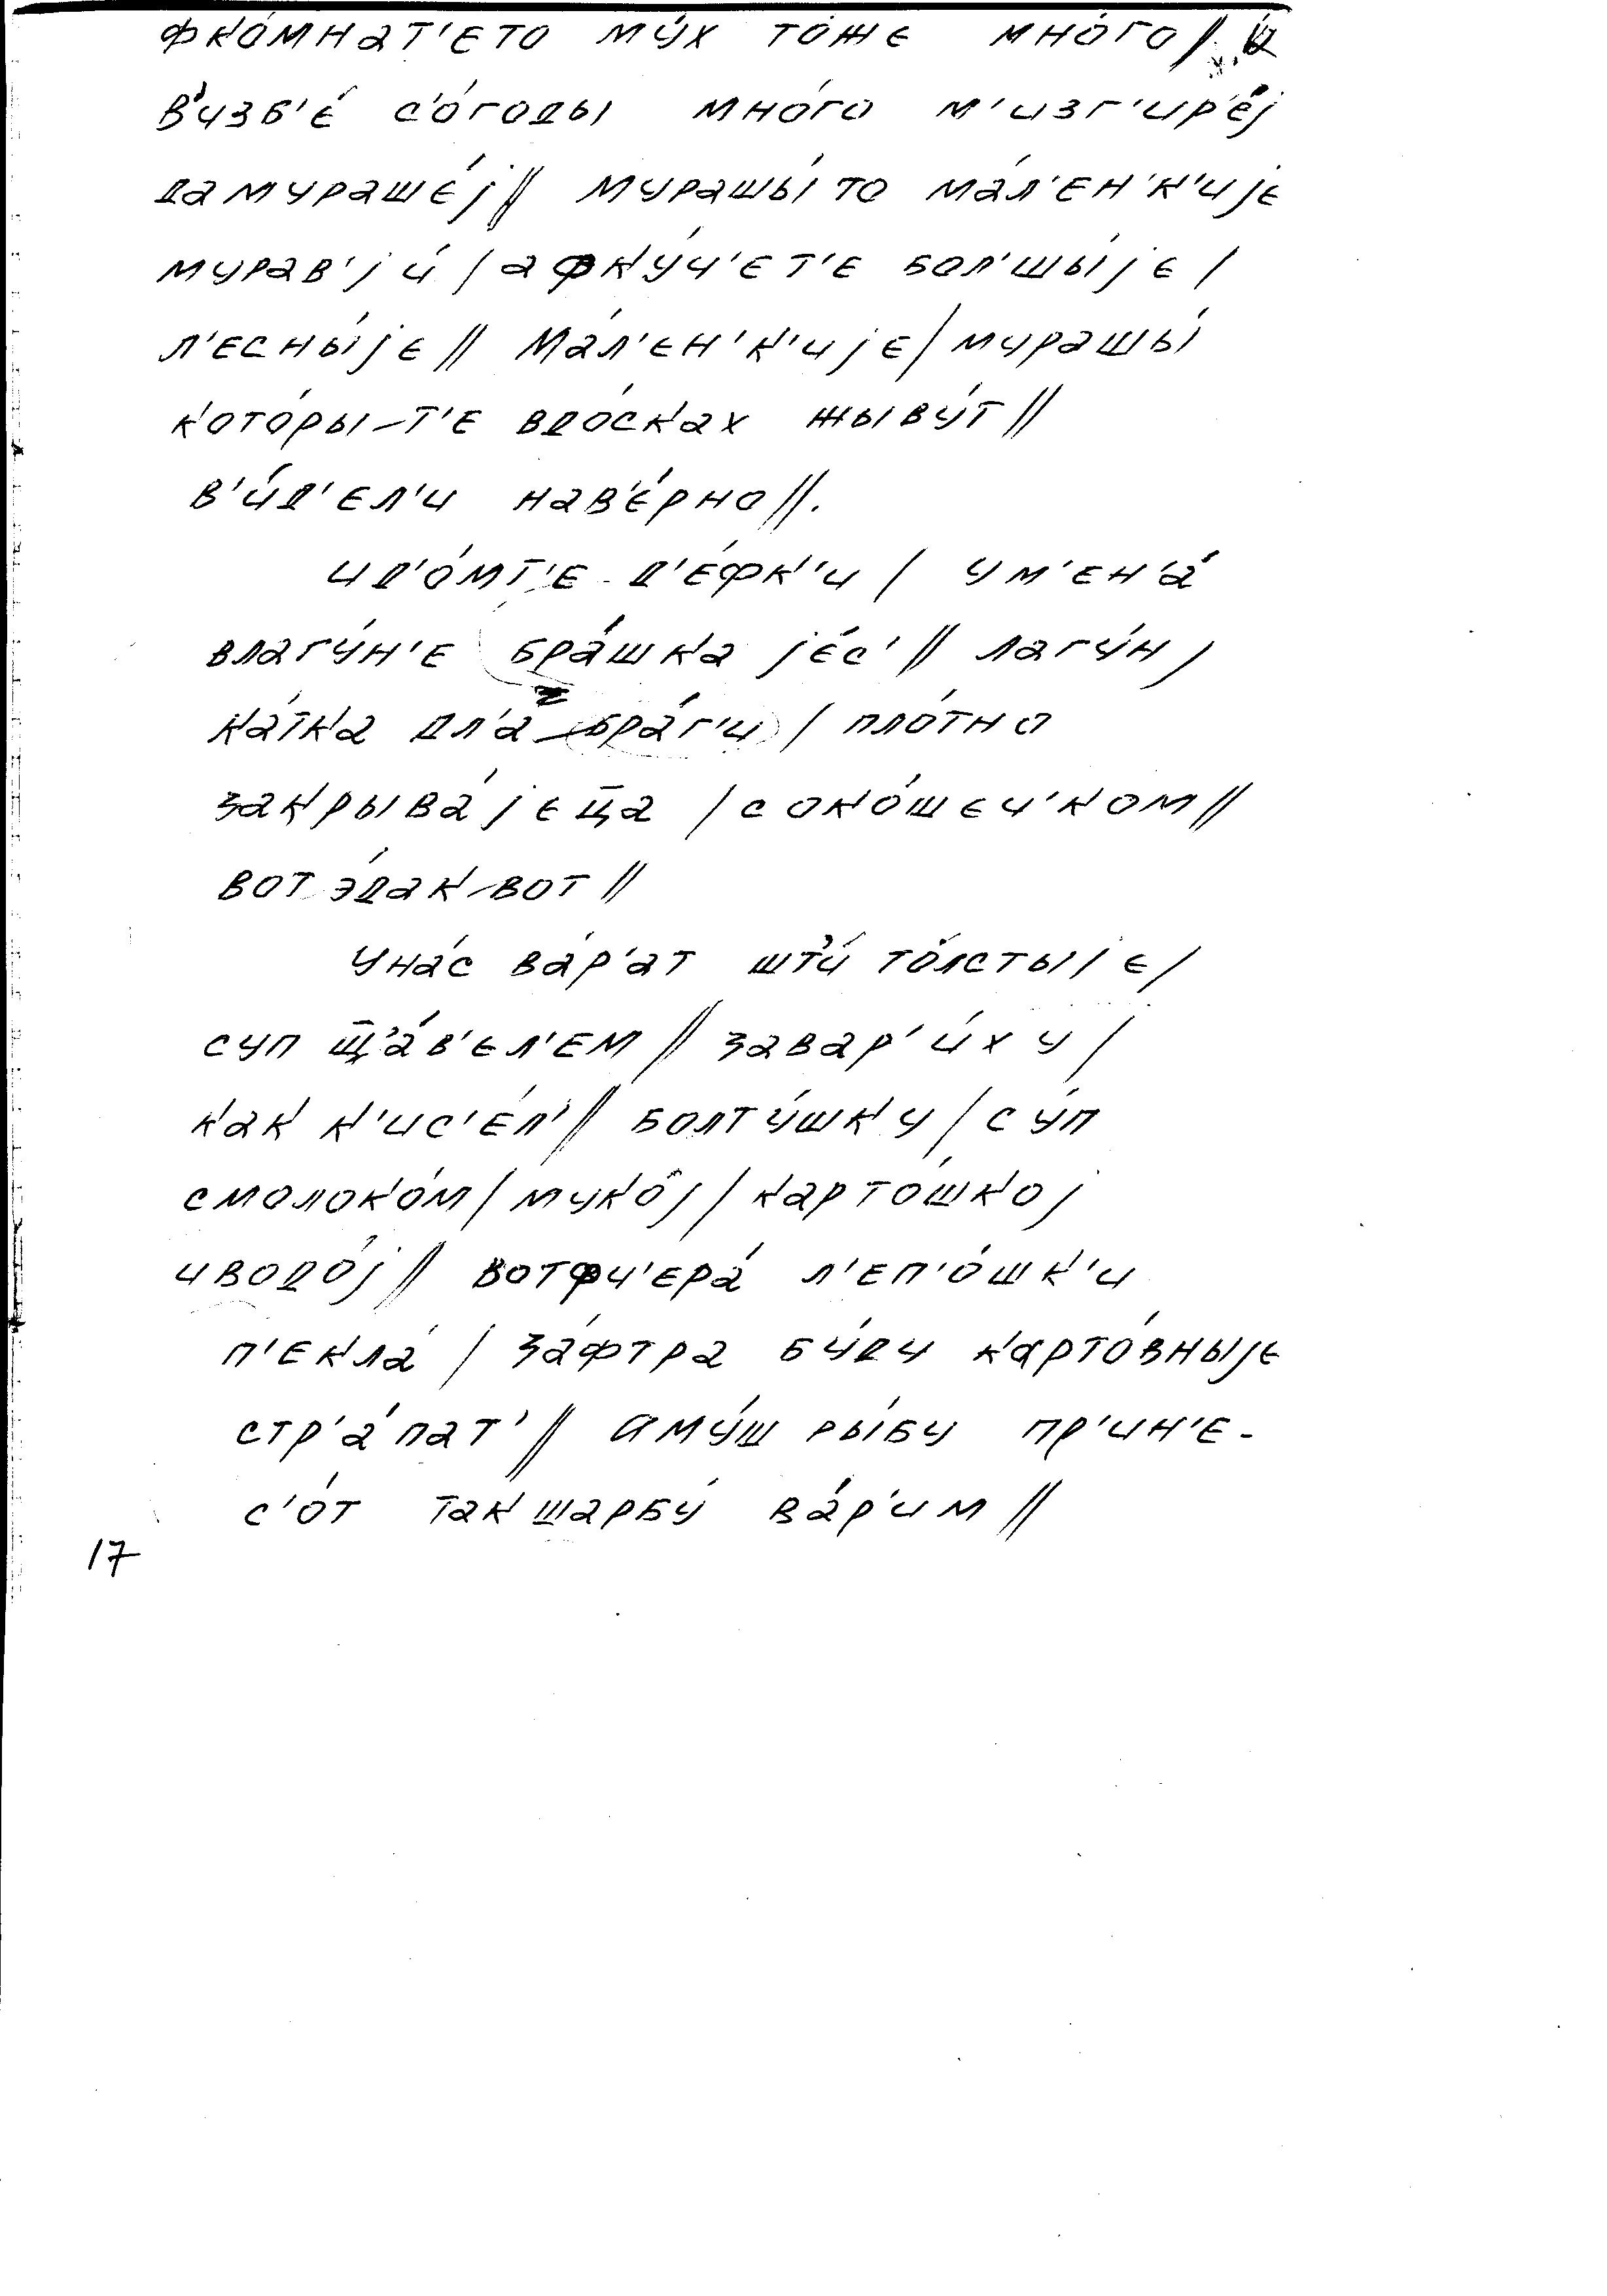 фко́мнат'ето му́х то́же мно́го//. и
в'изб'е́ с'о́годы мно́го м'изг'ир'е́j
дамураше́j// мурашы́то ма́л'ен'к'иjе
мурав'jи́ /афку́ч'ет'е бол'шы́jе/
л'есны́jе// Ма́л'ен'к'иjе/мурашы́
кото́ры-т'е вдо́сках жыву́т//
в'и́д'ел'и нав'е́рно//.
ид'о́мт'е д'е́фк'и/ ум'ен'а́
влагу́н'е бра́шка jе́с'// лагу́н/
ка́тка дл'а бра́г'и/ пло́тно
закрыва́jеца̄ /соко́шеч'ком//
вот э́дак-вот//
уна́с ва́р'ат шт'и́ то́лстыjе/
суп щ̄'а́в'ел'ем// завар'и́ху/
как к'ис'е́л'// болту́шку/су́п
смолоко́м/муко́j/карто́шкоj
иводо́j// вотфч'ера́ л'еп'о́шк'и
п'екла́/ за́фтра бу́ду карто́вныjе
стр'а́пат'// аму́ш ры́бу пр'ин'е-
с'о́т такшарбу́ ва́р'им//
17